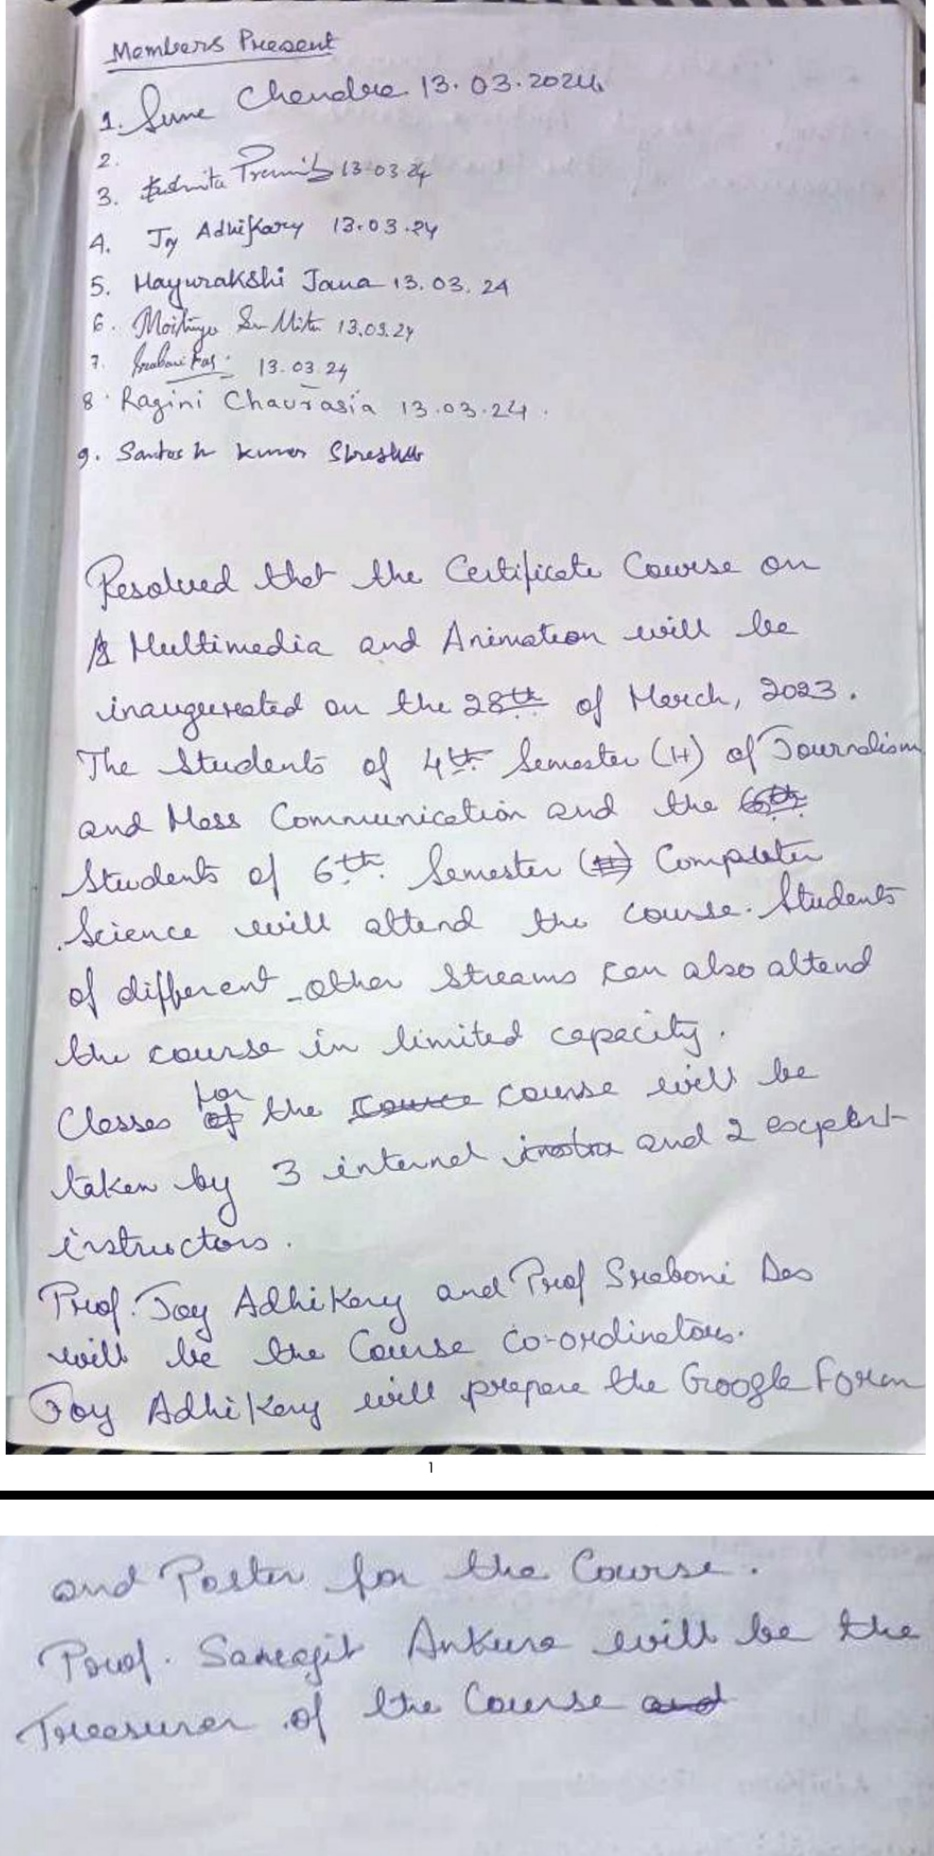 Members Present
1. Sume Chandra 13.03.2024
2.
3. 13.03.24
4. Joy Adhikary 13.03.24
5. Mayurakshi Jana 13.03.24
6. 13.03.24
7. Sraboni Das. 13.03.24
8. Ragini Chaurasia 13.03.24.
9. Santosh Kumar
Resolved that the Certificate Course on
Multimedia and Animation will be
inaugurated on the 28th of March, 2023.
The Students of 4th Semester (H) of Journalism
and Mass Communication and the 6th
Students of 6th Semester (H) Computer
Science will attend the course. Students
of different other streams can also attend
the course in limited capacity.
Classes of for the course course will be
taken by 3 internal instru and 2 expert
instructors.
Prof. Joy Adhikary and Prof Sraboni Das
will be the Course co-ordinators.
Joy Adhikary will prepare the Google Form
1
and Poster for the Course.
Prof. Ankura will be the
Treasurer of the Course and